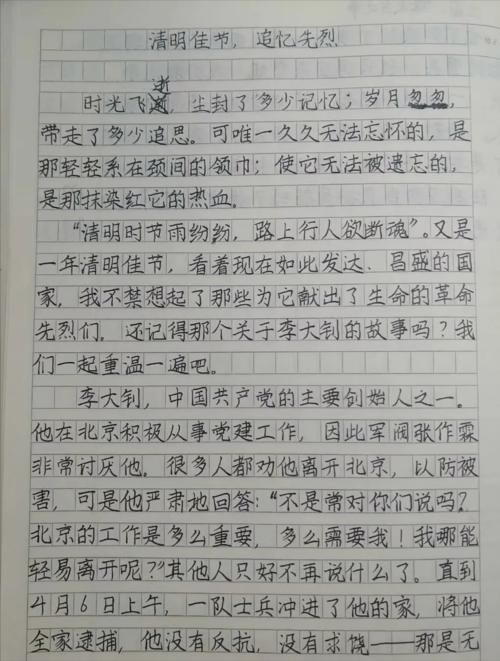 清明佳节，追忆先烈
时光飞逝，尘封了多少记忆；岁月忽忽，
带走了多少追思。可唯一久久无法忘怀的，是
那轻轻系在颈间的领巾；使它无法被遗忘的，
是那抹染红它的热血。
“清明时节雨纷纷，路上行人欲断魂”。又是
一年清明佳节，看着现在如此发达、昌盛的国
家，我不禁想起了那些为它献出了生命的革命
先烈们。还记得那个关于李大钊的故事吗？我
们一起重温一遍吧。
李大钊，中国共产党的主要创始人之一。
他在北京积极从事党建工作，因此军阀张作霖
非常讨厌他。很多人都劝他离开北京，以防被
害，可是他严肃地回答：“不是常对你们说吗？
北京的工作是多么重要，多么需要我！我哪能
轻易离开呢？”其他人只好不再说什么了。直到
4月6日上午，一队士兵冲进了他的家，将他
全家逮捕，他没有反抗，没有求饶——那是无